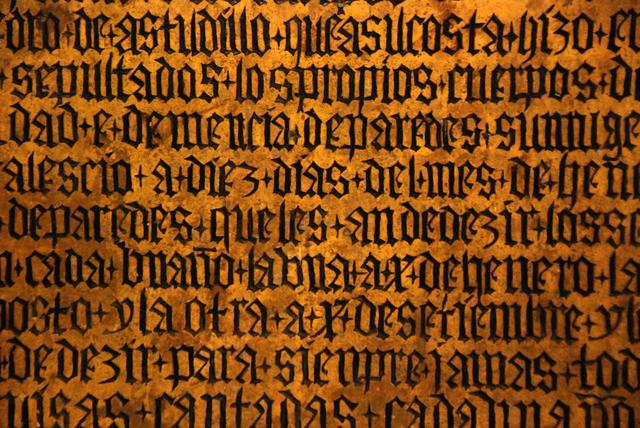 dro·de·astudillo·queasucosta·hizo·
·sepultados·lospropios·cuerpos·
dad·e·demencia·deparedes·sumuge
alescio·a·diez·dias·del·mes·de·heñ
·deparedes·queles·andedezir·
·cada·bnaño·labna·a·x·dehenero·la
osto·ylaotra·a·x·desetiembre·yl
·dedezir·para·sienpre·jamas·tod
·cantadas·cadabnaño